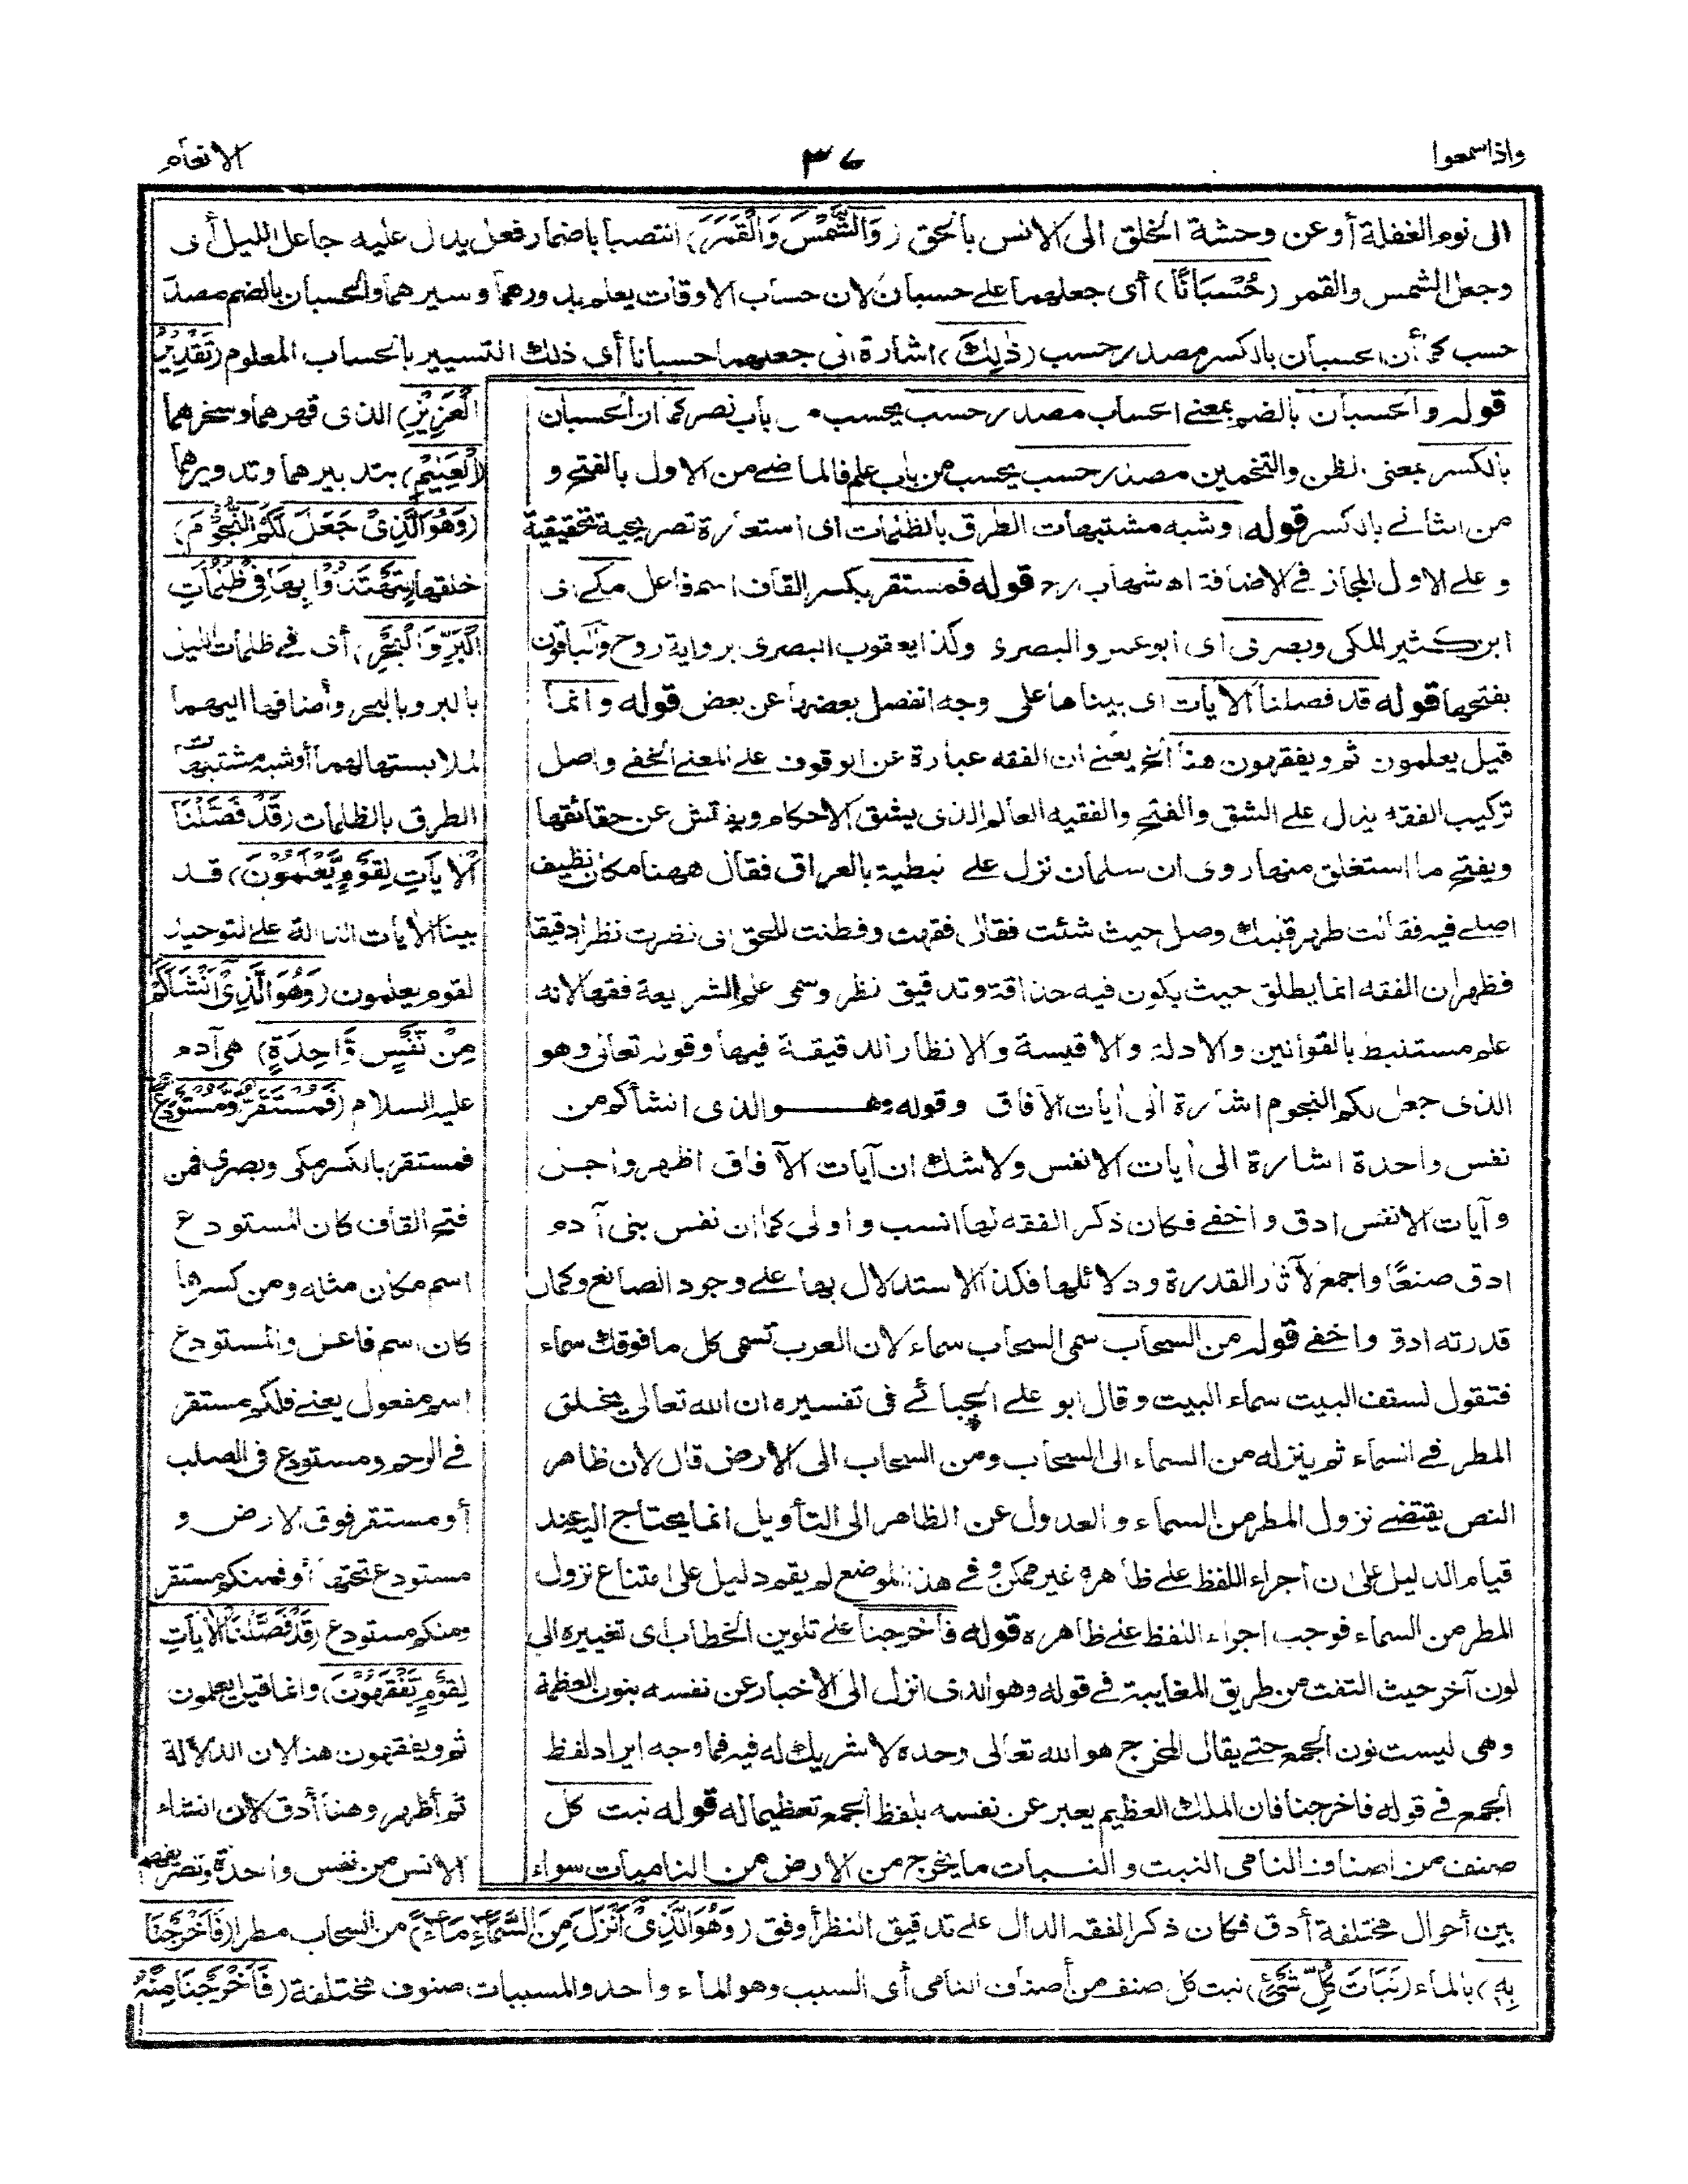 واذا سمعوا
٣٧
الانعام
الى نوم الغفلة أو عن وحشة الخلق الى الانس بالحق (وَالشَّمْسَ وَالْقَمَرَ) انتصبا باضمار فعل يدل عليه جاعل الليل أى
وجعل الشمس والقمر (حُسْبَانًا) أى جعلهما على حسبان لان حساب الاوقات يعلم بدورهما وسيرهما والحسبان بالضم مصدر
حسب كما أن الحسبان بالكسر مصدر حسب (ذٰلِكَ) اشارة الى جعلهما حسبانا أى ذلك التسيير بالحساب المعلوم (تَقْدِيْرُ
الْعَزِيْزِ) الذى قهرهما وسخرهما
الْعَلِيْمِ) بتدبيرهما وتدويرهما
(وَهُوَ الَّذِىْ جَعَلَ لَكُمُ النُّجُوْمَ)
خلقها (لِتَهْتَدُوْا بِهَا فِىْ ظُلُمَاتِ
الْبَرِّ وَالْبَحْرِ) أى فى ظلمات الليل
بالبر وبالبحر وأضافها اليهما
لملابستها لهما أو شبه مشتبهات
الطرق بالظلمات (قَدْ فَصَّلْنَا
الْاٰيَاتِ لِقَوْمٍ يَّعْلَمُوْنَ) قد
بينا الآيات الدالة على التوحيد
لقوم يعلمون (وَهُوَ الَّذِىْ اَنْشَاَكُمْ
مِنْ نَّفْسٍ وَّاحِدَةٍ) هى آدم
عليه السلام (فَمُسْتَقَرٌّ وَّمُسْتَوْدَعٌ)
فمستقر بالكسر مكى وبصرى فمن
فتح القاف كان المستودع
اسم مكان مثله ومن كسرها
كان اسم فاعل والمستودع
اسم مفعول يعنى فلكم مستقر
فى الرحم ومستودع فى الصلب
أو مستقر فوق الارض و
مستودع تحتها أو فمنكم مستقر
ومنكم مستودع (قَدْ فَصَّلْنَا الْاٰيَاتِ
لِقَوْمٍ يَّفْقَهُوْنَ) وانما قيل يعلمون
ثم ويفقهون هنا لان الدلالة
ثم أظهر وهنا أدق لان انشاء
الانس من نفس واحدة وتصريفهم
قوله والحسبان بالضم بمعنى الحساب مصدر حسب يحسب من باب نصر كما ان الحسبان
بالكسر بمعنى الظن والتخمين مصدر حسب يحسب من باب علم فالماضى من الاول بالفتح و
من الثانى بالكسر قوله او شبه مشتبهات الطرق بالظلمات اى استعارة تصريحية تحقيقية
وعلى الاول المجاز فى الاضافة اه شهاب قوله فمستقر بكسر القاف اسم فاعل مكى اى
ابن كثير المكى وبصرى اى ابو عمرو البصرى وكذا يعقوب البصرى برواية روح والباقون
بفتحها قوله قد فصلنا الآيات اى بيناها على وجه انفصل بعضها عن بعض قوله وانما
قيل يعلمون ثم ويفقهون هنا الخ يعنى ان الفقه عبارة عن الوقوف على المعنى الخفى واصل
تركيب الفقه يدل على الشق والفتح والفقيه العالم الذى يشق الاحكام ويفتش عن حقائقها
ويفتح ما استغلق منها روى ان سلمان نزل على نبطية بالعراق فقال ههنا مكان نظيف
اصلى فيه فقالت طهر قلبك وصل حيث شئت فقال فقهت وفطنت للحق اى نظرت نظرا دقيقا
فظهر ان الفقه انما يطلق حيث يكون فيه حذاقة وتدقيق نظر وسمى علم الشريعة فقها لانه
علم مستنبط بالقوانين والادلة والاقيسة والانظار الدقيقة فيها وقوله تعالى وهو
الذى جعل لكم النجوم اشارة الى آيات الآفاق وقوله وهو الذى انشأكم من
نفس واحدة اشارة الى آيات الانفس ولا شك ان آيات الآفاق اظهر واجلى
وآيات الانفس ادق واخفى فكان ذكر الفقه لها انسب واولى كما ان نفس بنى آدم
ادق صنعًا واجمع لآثار القدرة ودلائلها فكذا الاستدلال بها على وجود الصانع وكمال
قدرته ادق واخفى قوله من السحاب سمى السحاب سماء لان العرب تسمى كل ما فوقك سماء
فتقول لسقف البيت سماء البيت وقال ابو على الجبائى فى تفسيره ان الله تعالى يخلق
المطر فى السماء ثم ينزله من السماء الى السحاب ومن السحاب الى الارض قال لان ظاهر
النص يقتضى نزول المطر من السماء والعدول عن الظاهر الى التأويل انما يحتاج اليه عند
قيام الدليل على ان اجراء اللفظ على ظاهره غير ممكن وفى هذا الموضع لم يقم دليل على امتناع نزول
المطر من السماء فوجب اجراء اللفظ على ظاهره قوله فأخرجنا على تلوين الخطاب اى تغييره الى
لون آخر حيث التفت من طريق المغايبة فى قوله وهو الذى انزل الى الاخبار عن نفسه بنون العظمة
وهى ليست نون الجمع حتى يقال المخرج هو الله تعالى وحده لا شريك له فيه فما وجه ايراد لفظ
الجمع فى قوله فاخرجنا فان الملك العظيم يعبر عن نفسه بلفظ الجمع تعظيما له قوله نبت كل
صنف من اصناف النامى النبت والنبات ما يخرج من الارض من الناميات سواء
بين أحوال مختلفة أدق فكان ذكر الفقه الدال على تدقيق النظر أوفق (وَهُوَ الَّذِىْ اَنْزَلَ مِنَ السَّمَآءِ مَآءً) من السحاب مطرا (فَاَخْرَجْنَا
بِهٖ) بالماء (نَبَاتَ كُلِّ شَىْءٍ) نبت كل صنف من أصناف النامى أى السبب وهو الماء واحد والمسببات صنوف مختلفة (فَاَخْرَجْنَا مِنْهُ